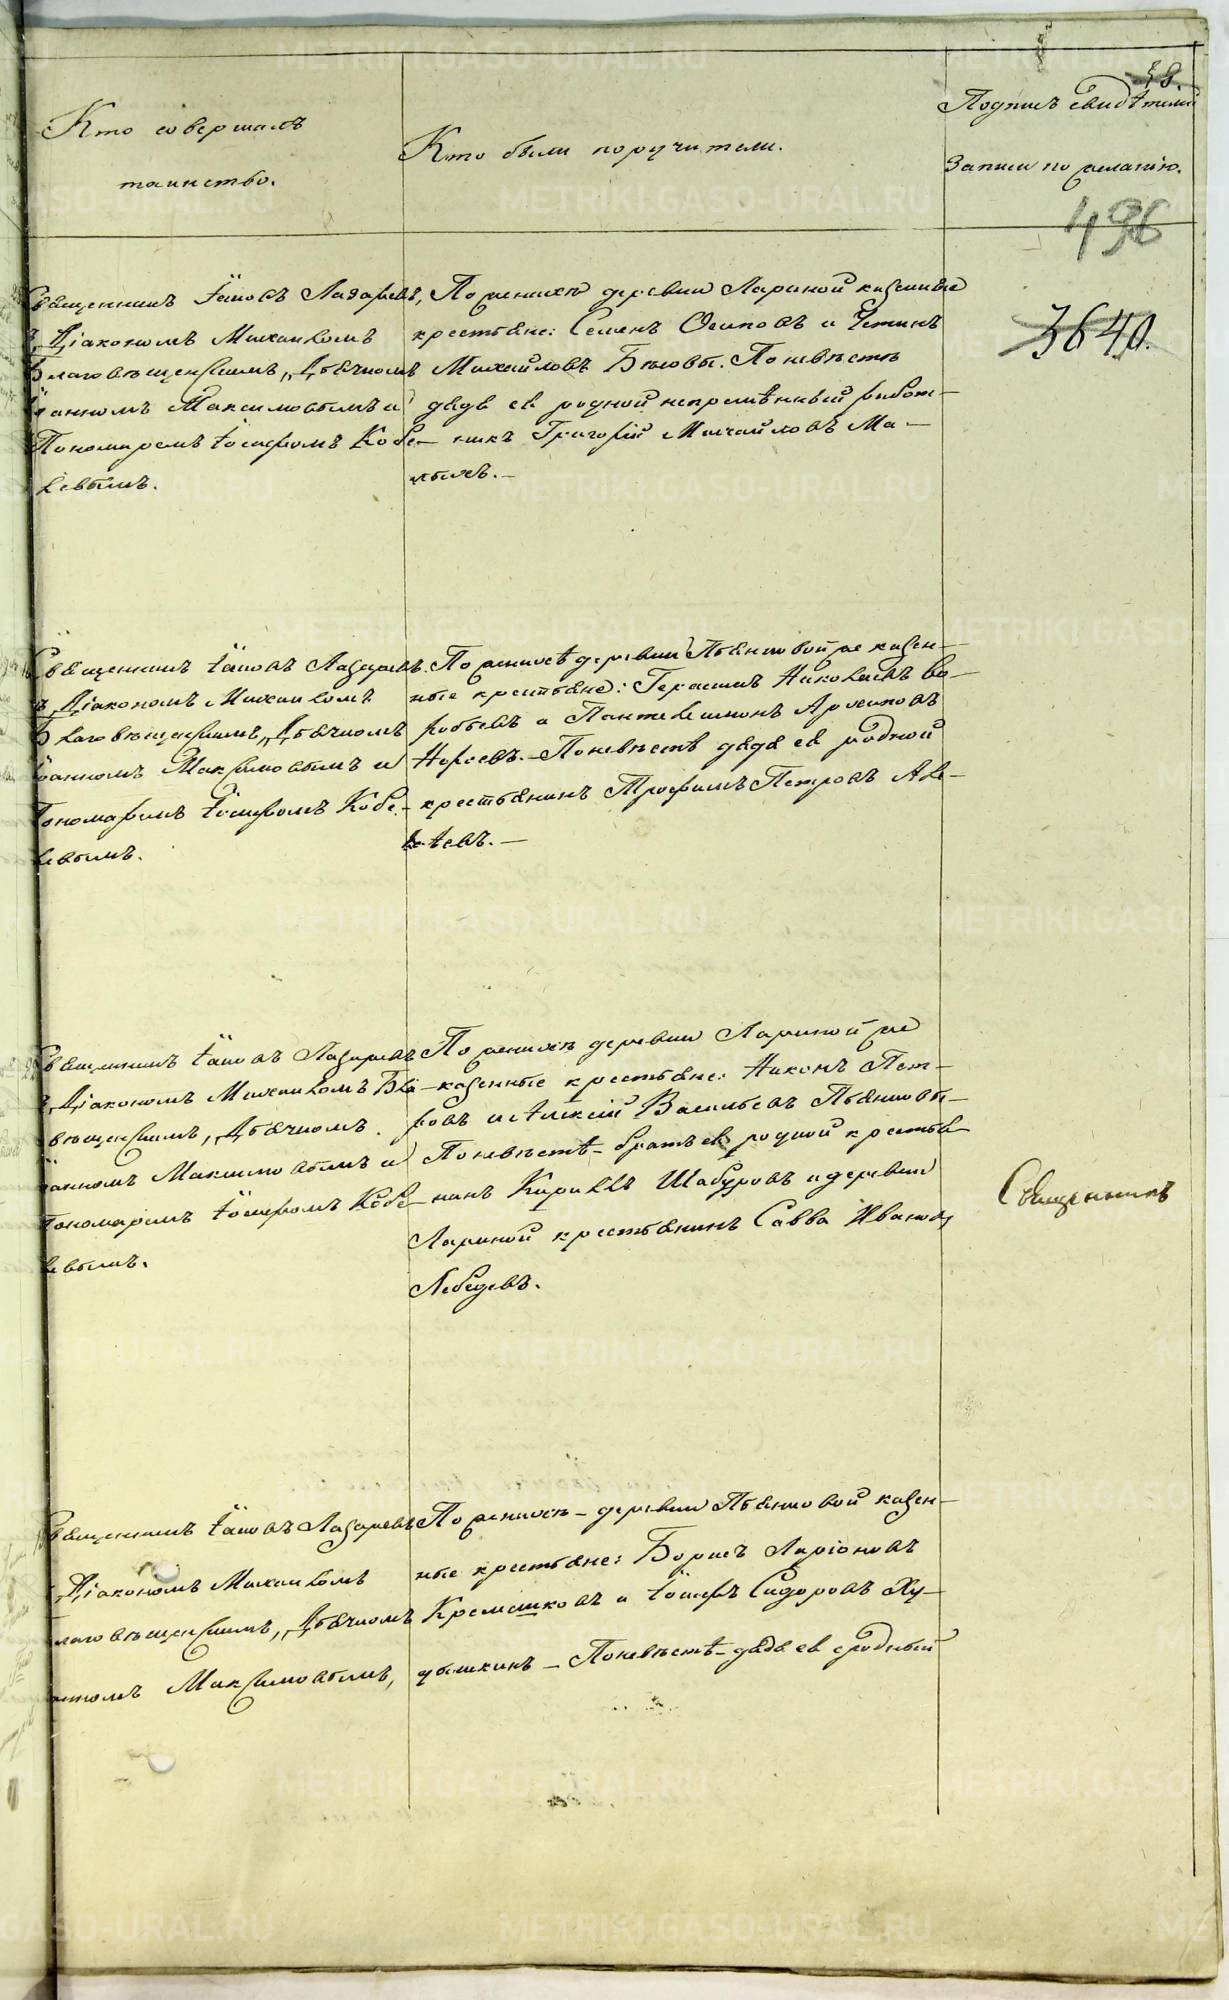 Кто совершалъ
таинство.
Кто были поручители.
Подписъ свидѣтелей
записи по желанію.
38
496
3640.
Священникъ Іаковъ Лазаревъ,
Діакономъ Михаиломъ
Благовѣщенскимъ, Дьячкомъ
Іоанномъ Максимовымъ и
Пономаремъ Іосифомъ Кобе-
левымъ.
По женихѣ деревни Лариной казенные
крестьяне: Семенъ Осиповъ и Устинъ
Михайловъ Бѣловы. По невѣстѣ
дядя ея родной непремѣнный работ-
никъ Григорій Михайловъ Ма-
лыхъ.—
Священникъ Іаковъ Лазаревъ.
Діакономъ Михаиломъ
Благовѣщенскимъ, Дьячкомъ
Іоанномъ Максимовымъ и
Пономаремъ Іосифомъ Кобе-
левымъ.
По женихѣ деревни Пьянковой же казен-
ные крестьяне: Герасимъ Николаевъ Во-
робьевъ и Пантелеимонъ Архиповъ
По невѣстѣ дядя ея родной
крестьянинъ Трофимъ Петровъ Але-
ѣевъ.—
Священникъ Іаковъ Лазаревъ
Діакономъ Михаиломъ Бла-
вѣщенскимъ, Дьячкомъ
Іоанномъ Максимовымъ и
Пономаремъ Іосифомъ Кобе-
левымъ.
По женихѣ деревни Лариной же
казенные крестьяне: Никонъ Пет-
ровъ и Алексій Васильевъ Пьянковы-
По невѣстѣ - братъ ея родной крестья-
нинъ Кириллъ Шабуровъ и деревни
Лариной крестьянинъ Савва Ивановъ
Лебедевъ.
Священникъ
Священникъ Іаковъ Лазаревъ
Діакономъ Михаиломъ
лаговѣщенскимъ, Дьячкомъ
анномъ Максимовымъ,
По женихѣ - деревни Пьянковой казен-
ные крестьяне: Борисъ Ларіоновъ
Кремешковъ и Іосифъ Сидоровъ Ху-
дышкинъ - По невѣстѣ - дядя ея сродный